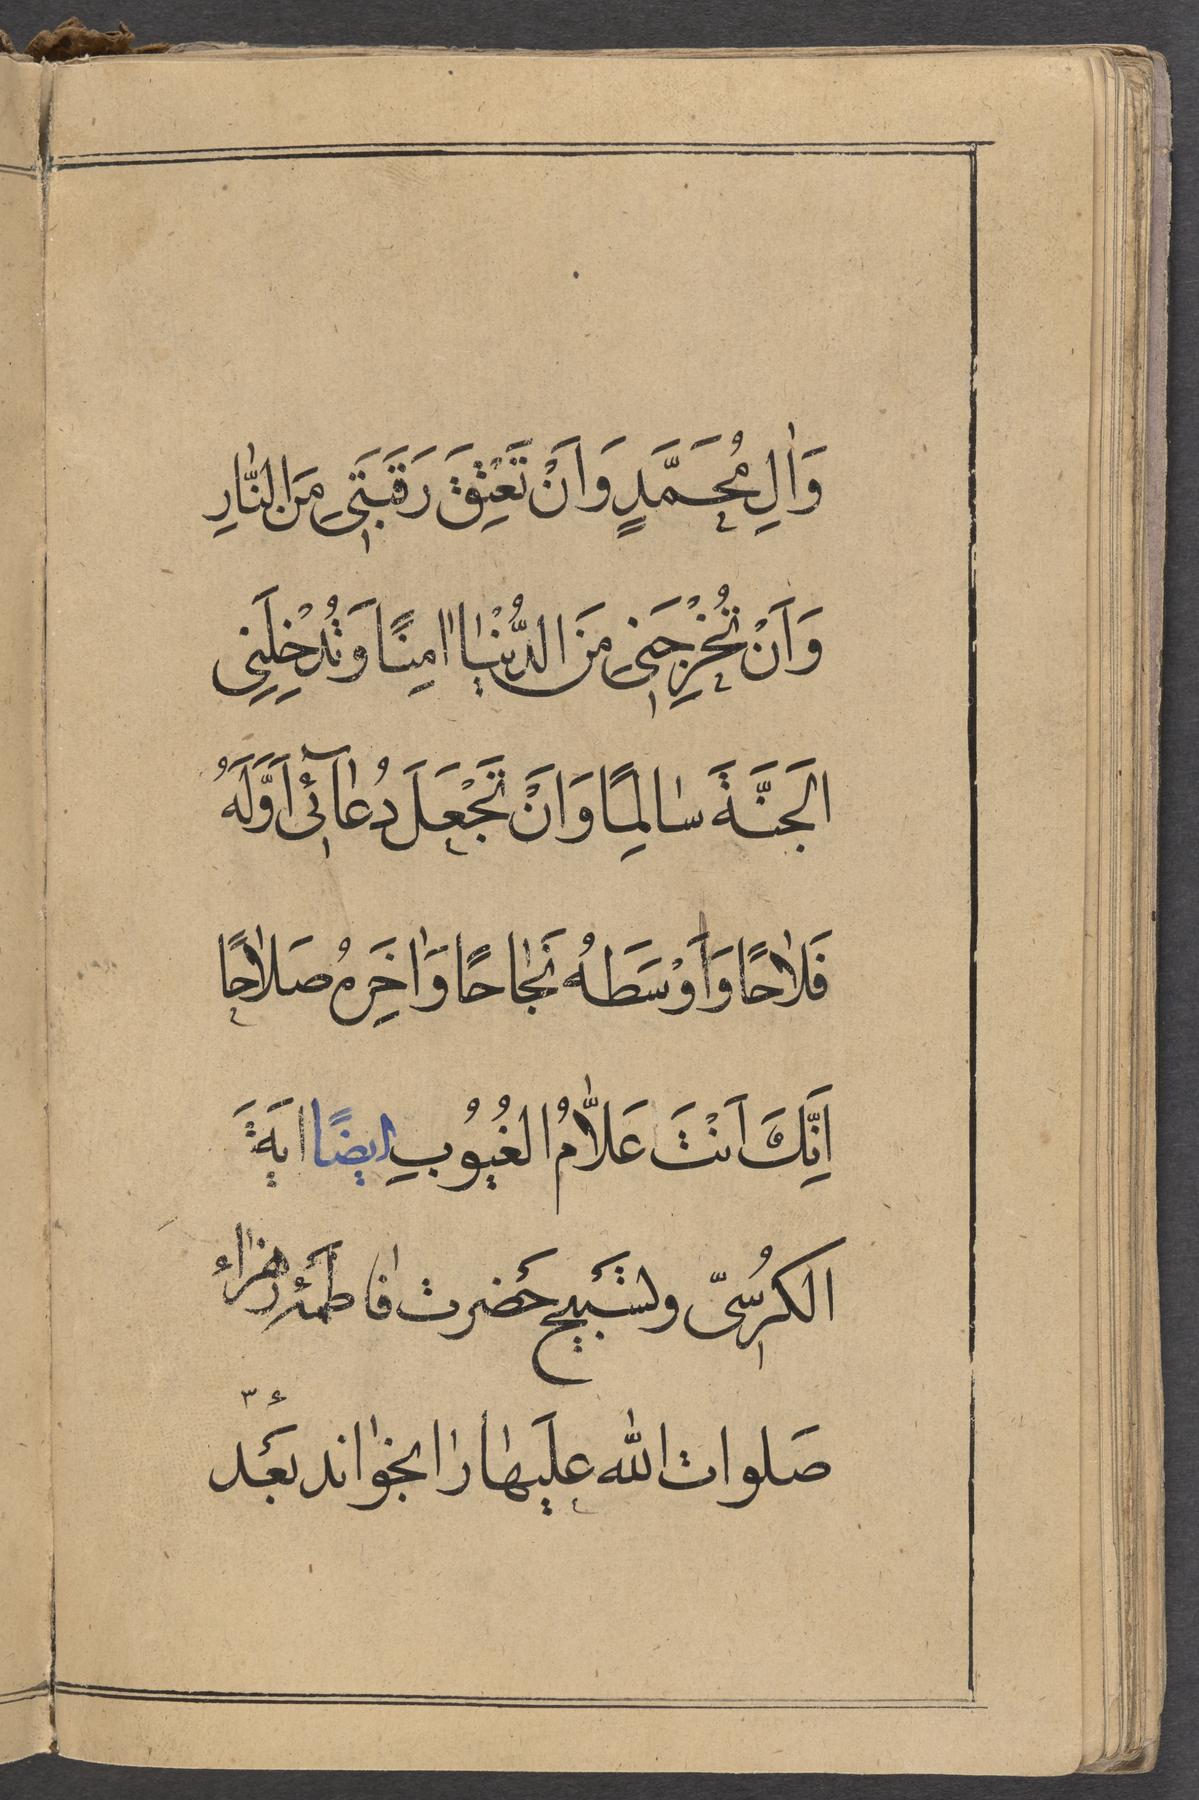 وَاٰلِ مُحَمَّدٍ وَاَنْ تَعْتِقَ رَقَبَتِي مِنَ النّٰارِ
وَاَنْ تُخْرِجَنِي مِنَ الدُّنْيٰا اٰمِنًا وَتُدْخِلَنِي
الْجَنَّةَ سٰالِمًا وَاَنْ تَجْعَلَ دُعٰآئِي اَوَّلَهُ
فَلٰاحًا وَاَوْسَطَهُ نَجٰاحًا وَاٰخِرَهُ صَلٰاحًا
اِنَّكَ اَنْتَ عَلّٰامُ الْغُيُوبِ ايضًا ايَةَ
الكُرسىّ و تسَبيح حَضرت فٰاطمَهٔ زهرٰاء
صَلوات اللّٰه عليَهٰا رٰا بخوٰاند بعَد